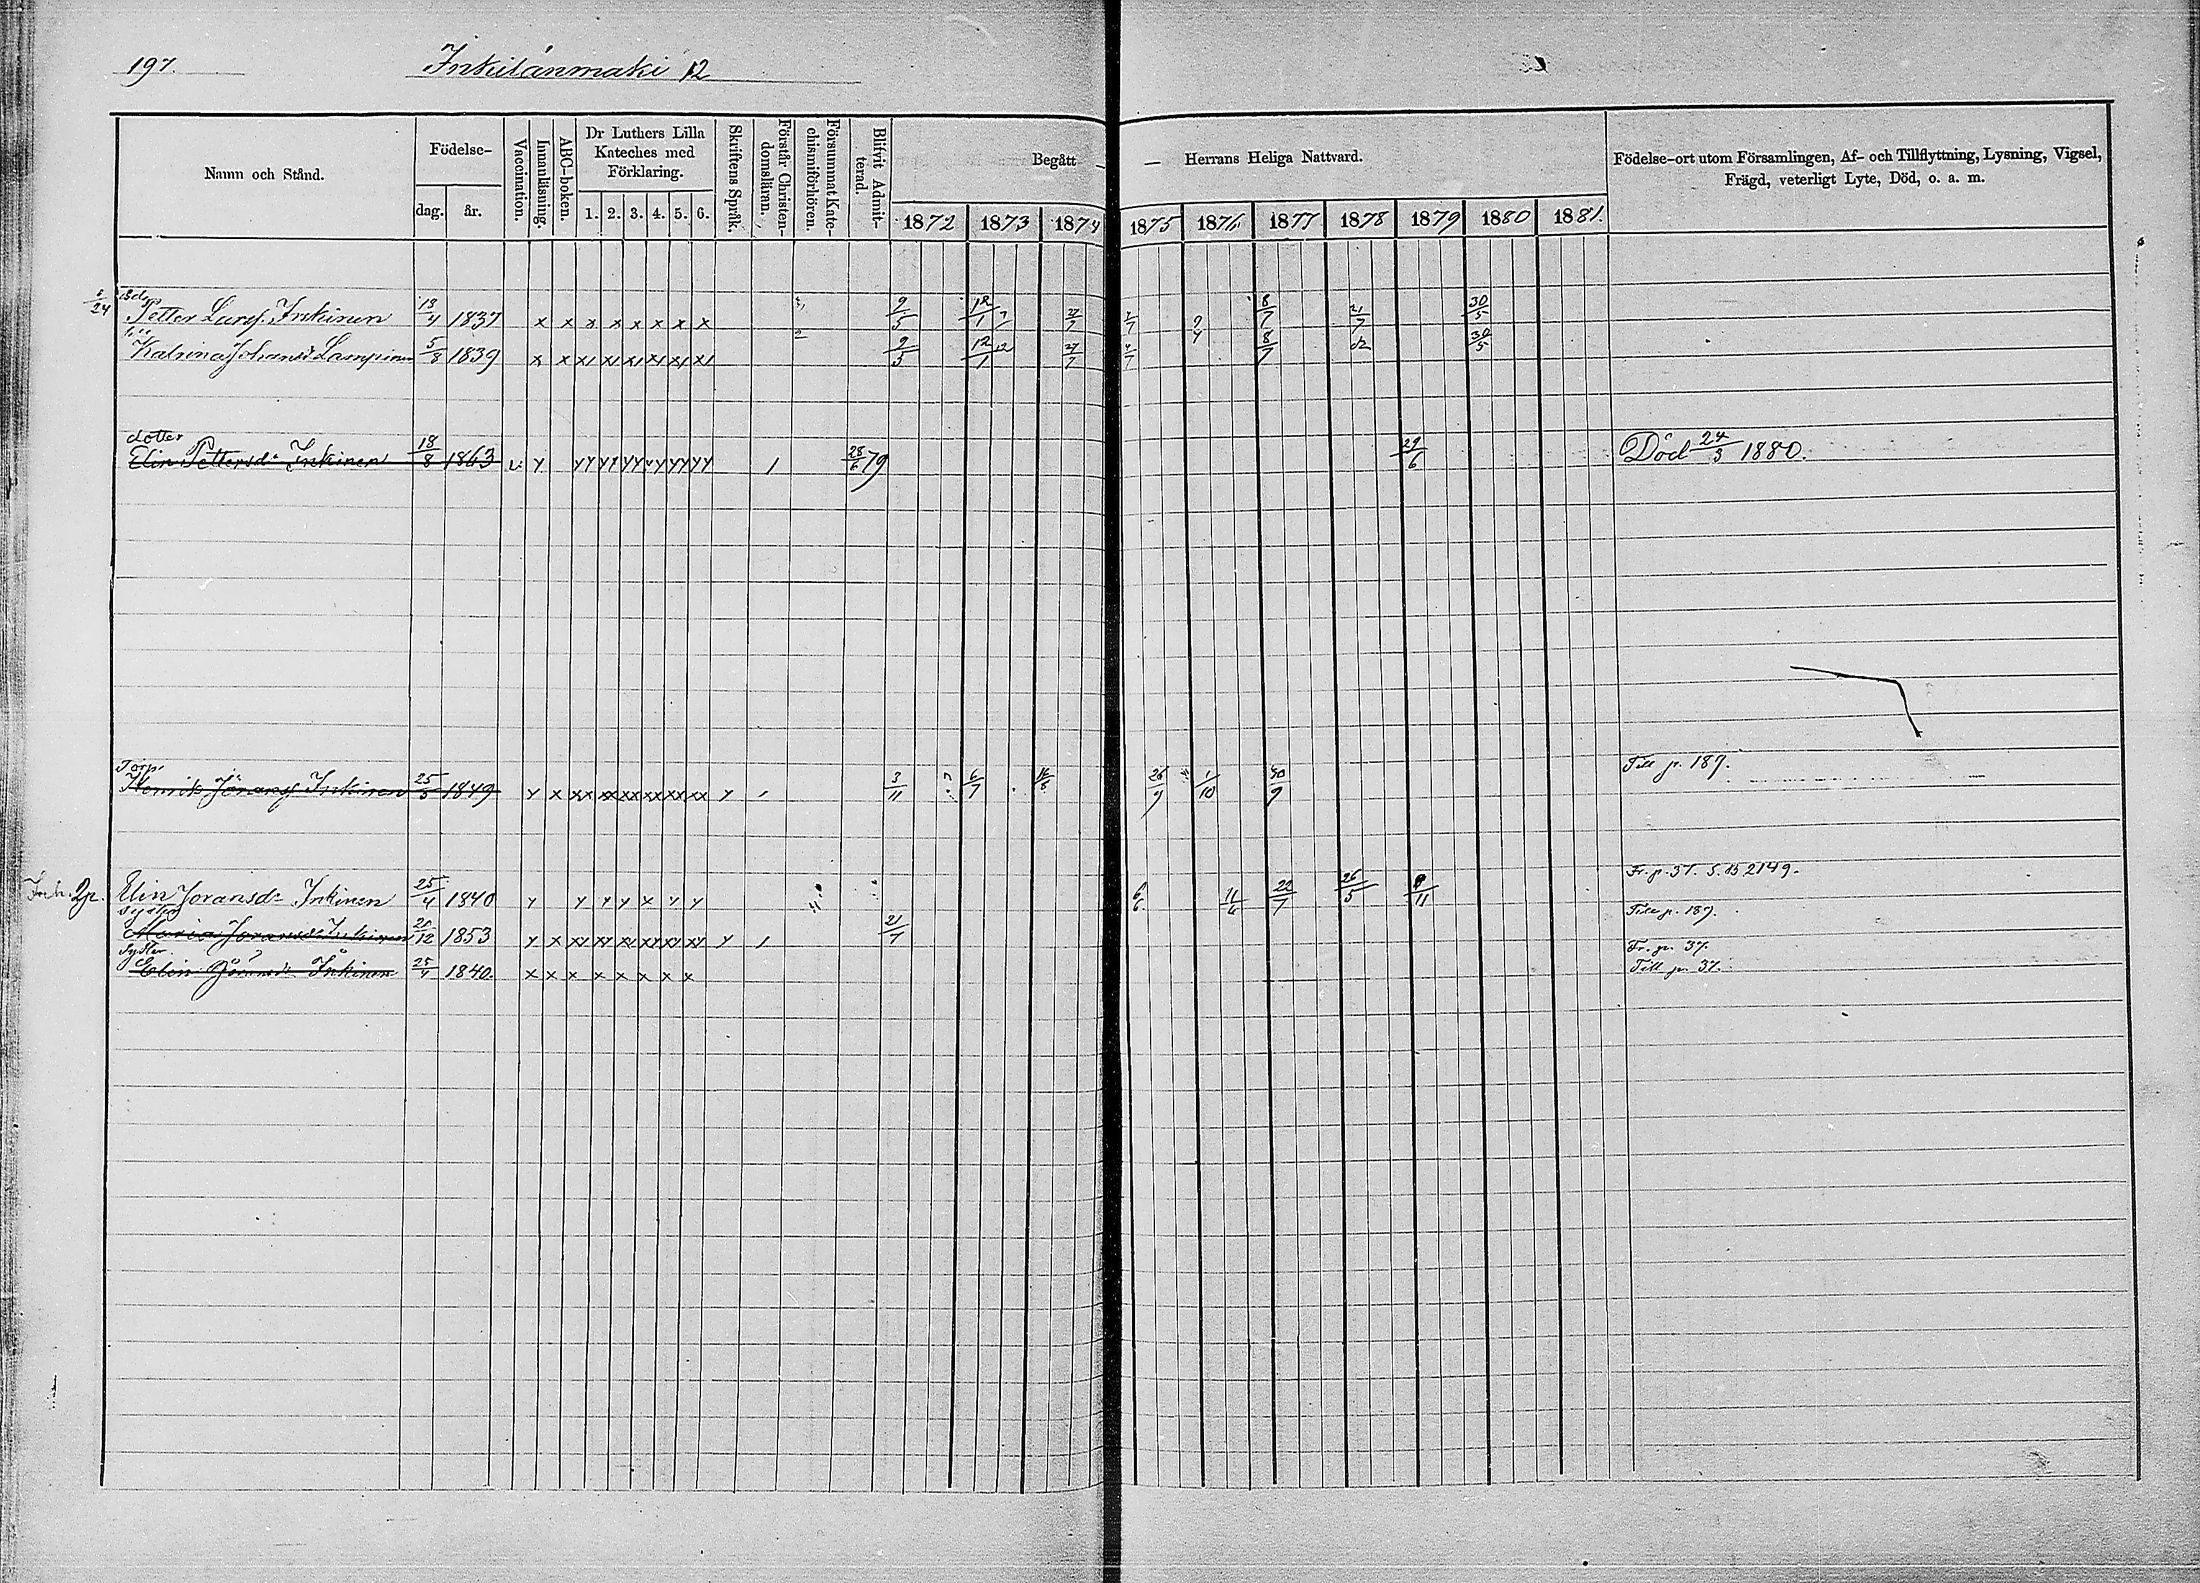 197.
Inkilänmäki 12
Namn och Stånd.
Födelse-
dag. år.
Vaccination.
Innanläsning.
ABC-boken.
Dr Luthers Lilla
Kateches med
Förklaring.
1. 2. 3. 4. 5. 6.
Skriftens Språk.
Förstår Christen-
domsläran.
Försummat Kate-
chismiförhören.
Blifvit Admit-
terad.
Begått — Herrans Heliga Nattvard.
1872 1873 1874 1875 1876 1877 1878 1879 1880 1881.
Födelse-ort utom Församlingen, Af- och Tillflyttning, Lysning, Vigsel,
Frägd, veterligt Lyte, Död, o. a. m.
Petter Larsf. Inkinen 13/4 1837 x x x x x x x x 9/5 12/1 27/7 2/7 8/7 21/7 30/5
Katrina Johansd Lampinen 5/8 1839 x x x1 x1 x1 x1 x1 x1 9/5 12/1 27/7 2/7 8/7 30/5
dotter
Elin Pettersd:r Inkinen 18/8 1863 v. y yy yy yy yy yy yy / 28/6 79 29/6 Död 24/3 1880.
Torp.
Henrik Jöransf Inkinen 25/5 1849 y x xx xx xx xx xx xx y / 3/11 6/7 26/9 1/10 30/9 Till p. 187.
Fr. p. 37. S. B 2149.
Elin Joransd:r Inkinen 25/4 1840 y y y y x y y 6/6 11/6 22/7 26/5 9/11
syster
Maria Joransd:r Inkinen 20/12 1853 y x xy xy xy xy xy xy y / 21/7 Till p. 187.
Syster
Elin Jöransd:r Inkinen 25/4 1840. x x x x x x x x Fr. p. 37.
Till p. 37.